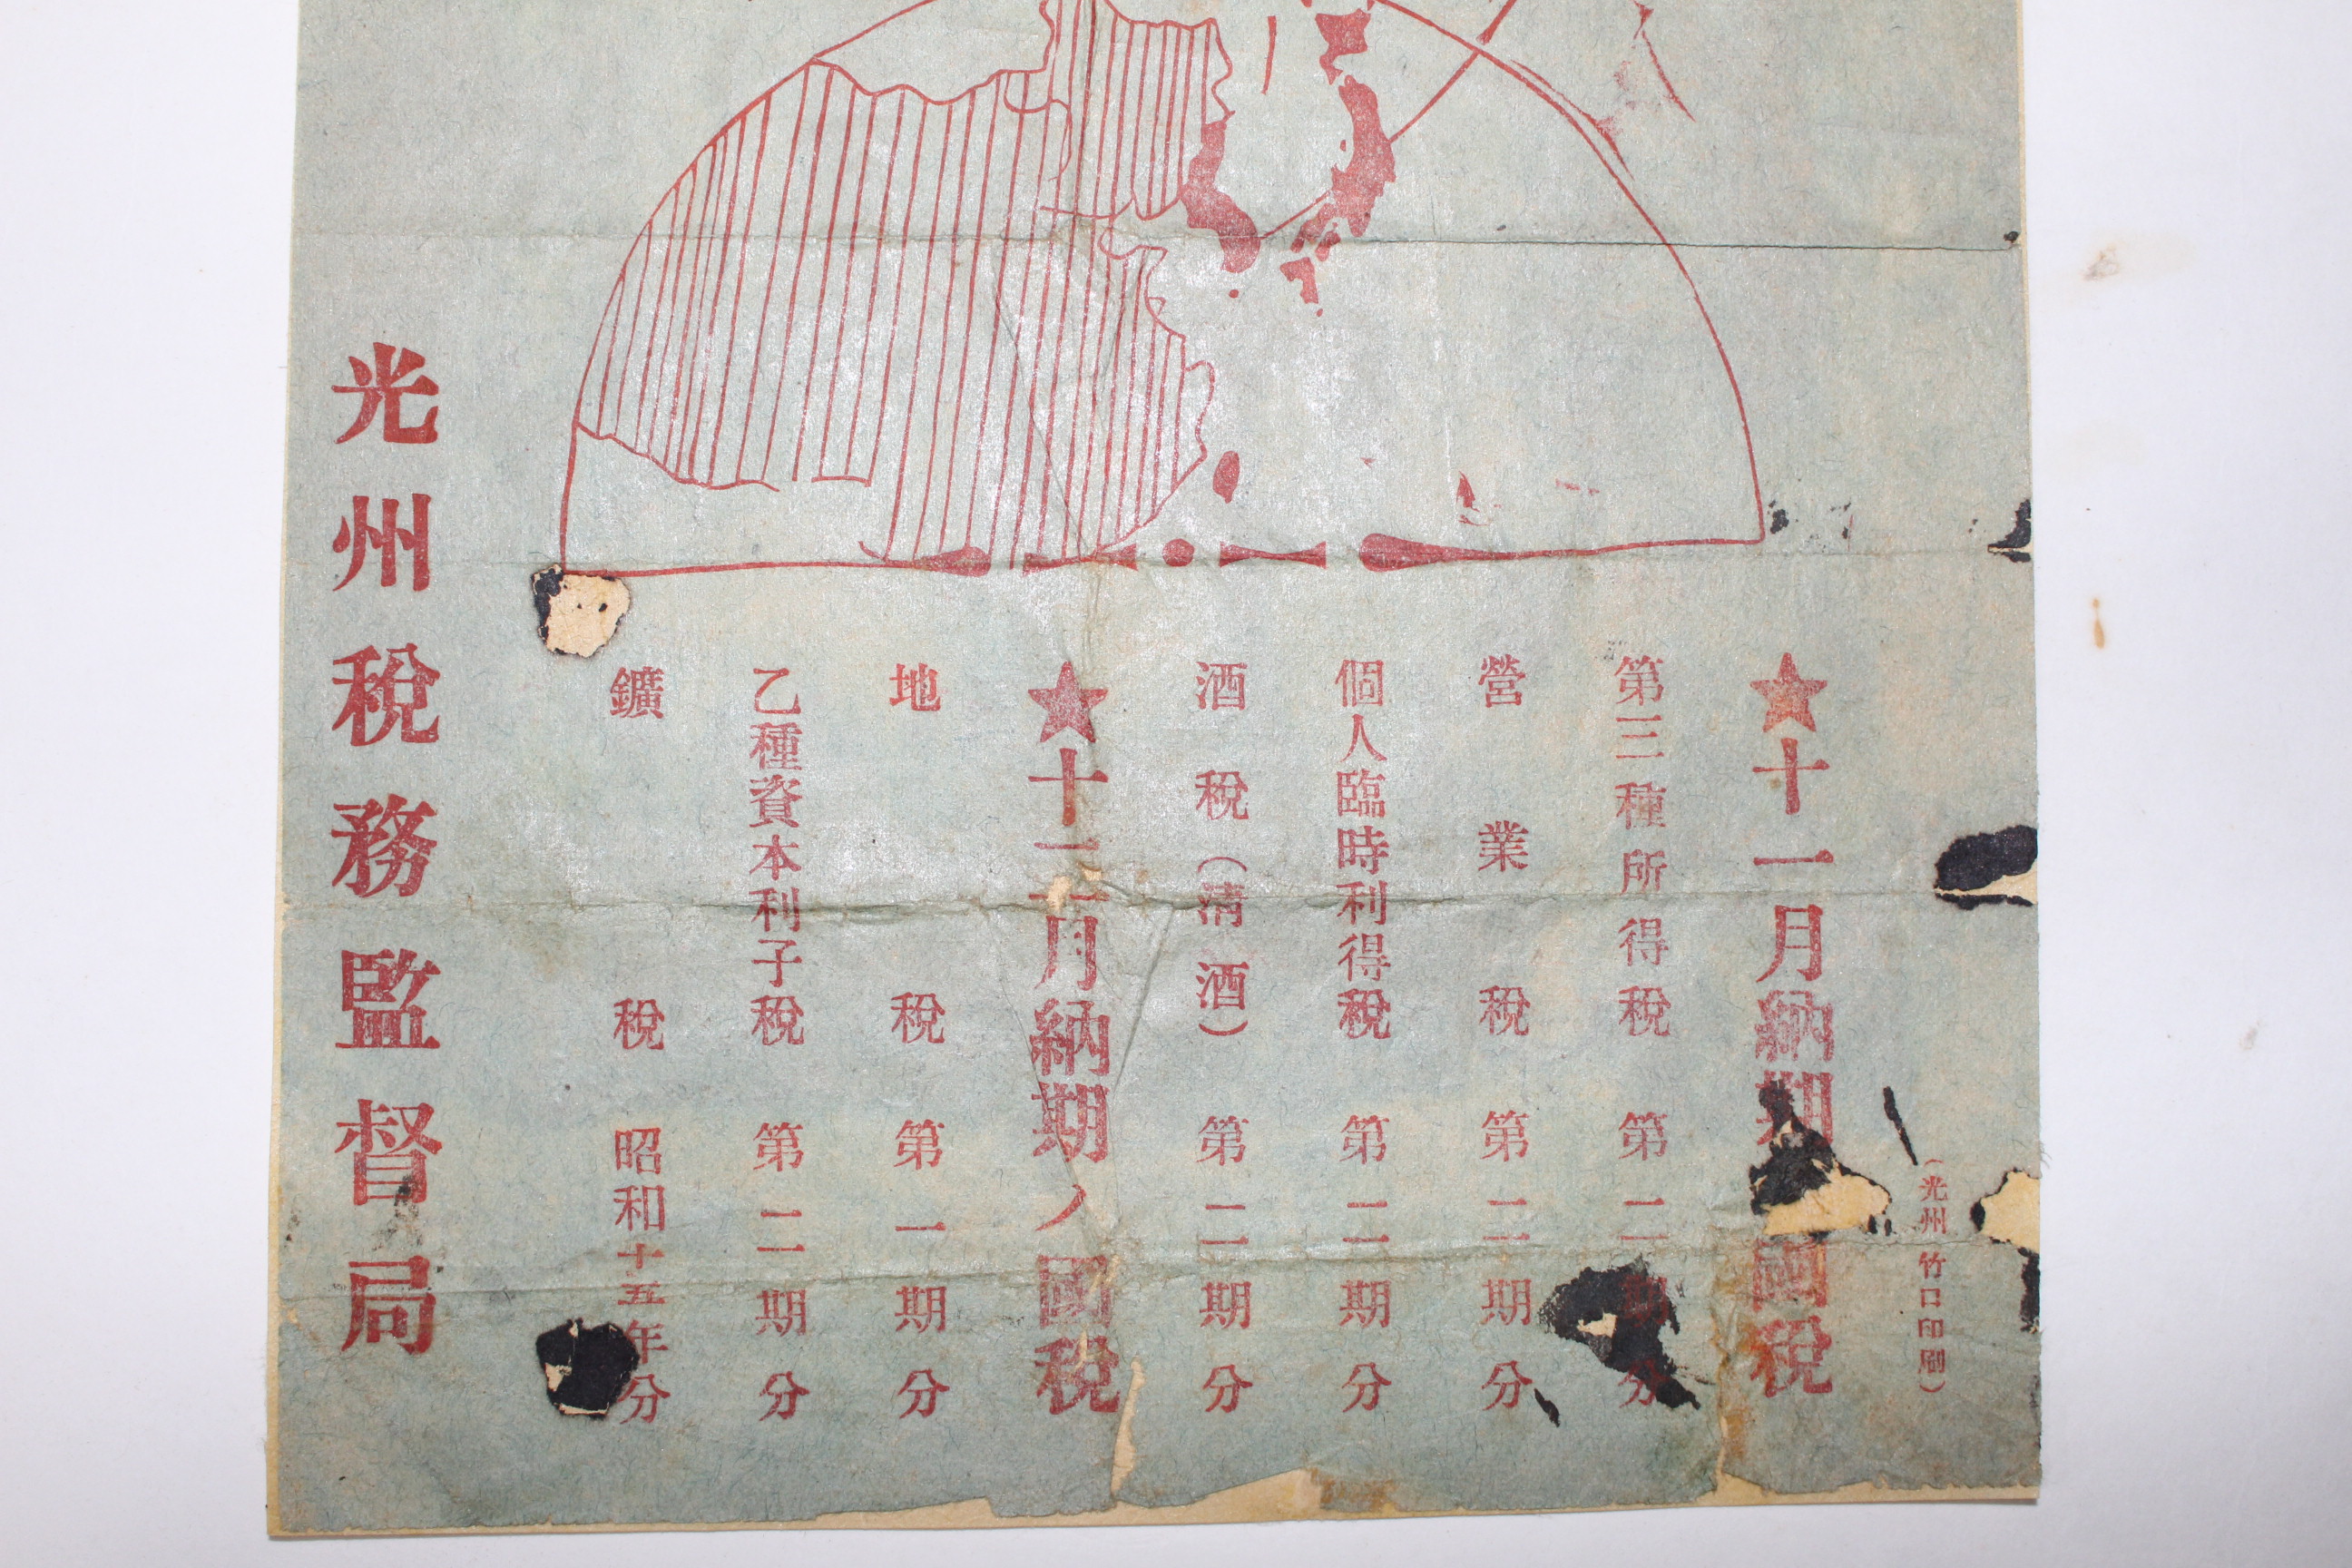 (光州竹口印刷)
★十一月納期ノ國稅
第三種所得稅 第二期分
營業稅 第二期分
個人臨時利得稅 第二期分
酒稅(淸酒) 第二期分
★十二月納期ノ國稅
地稅 第一期分
乙種資本利子稅 第二期分
鑛稅 昭和十五年分
光州稅務監督局